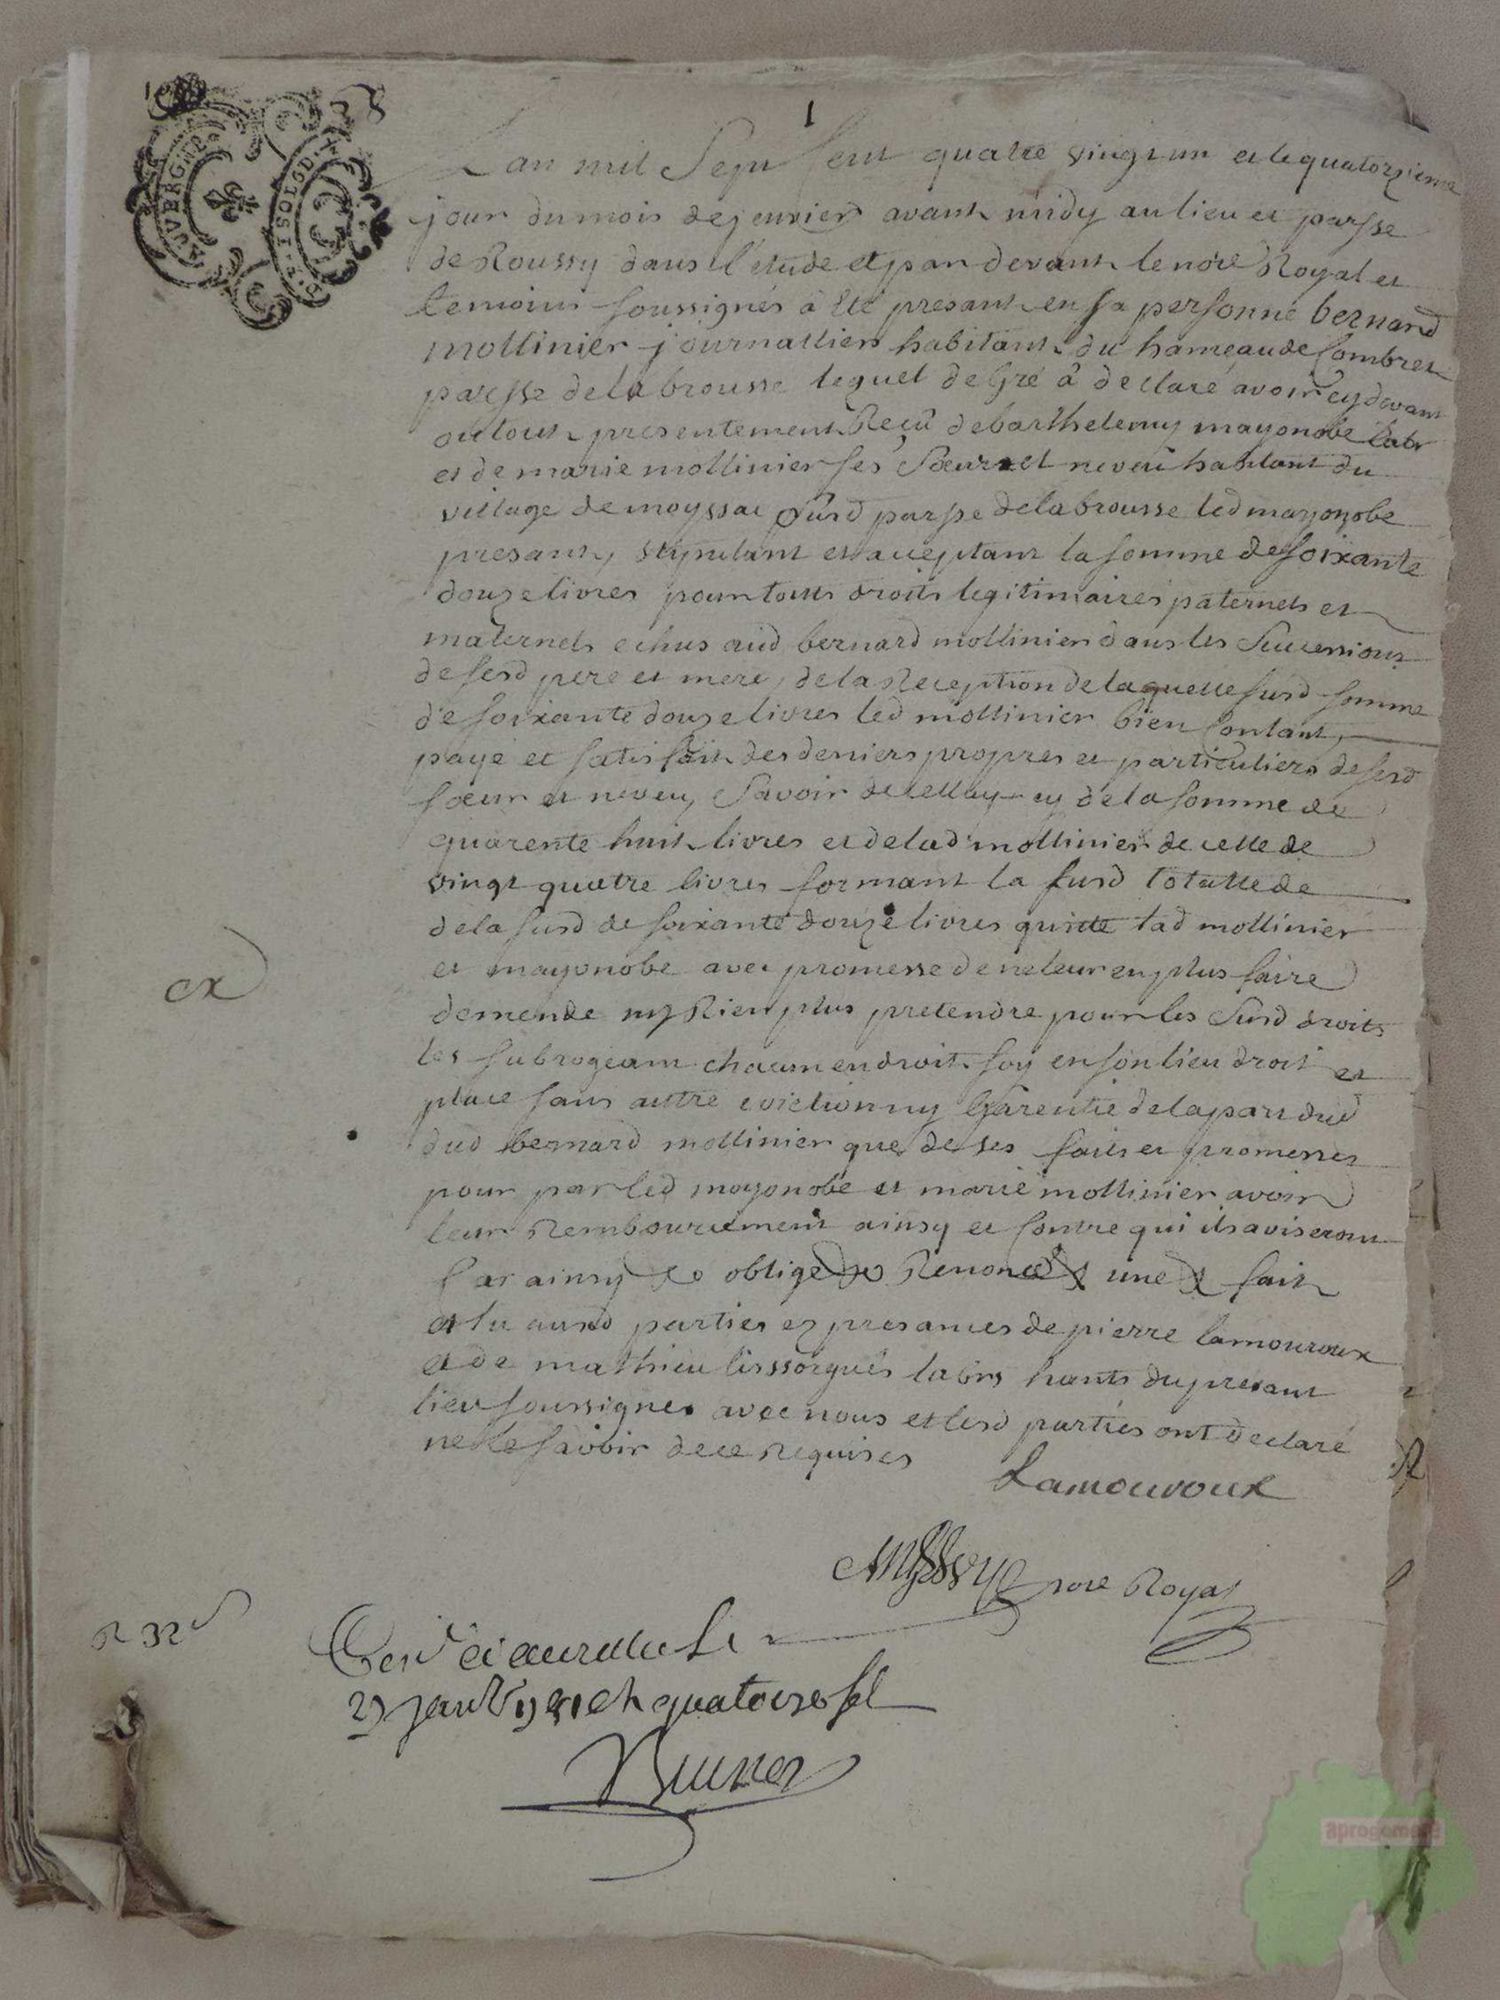 1
AUVERGNE
Lan mil Sept Cent quatre vingt un et le quatorzieme
jour du mois de jenvier avant midy au lieu et parsse
de Roussy dans l'etude et par devant le nore Royal et
temoins soussignés à été presant en sa personne bernard
mollinier journallier habitant du hameau de Combret
parsse de labrousse lequel de gré à declaré avoir cy devant
ou tout presentement Reçû de barthelemy mayonobe labr
et de marie mollinier ses Sœur et neveu habitant du
village de moyssac susd parsse de labrousse led mayonobe
presant, stipulant et acceptant la somme de soixante
douze livres pour tous droits legitimaires paternels et
maternels echus aud bernard mollinier dans les Successions
de sesd pere et mere, de la Reception de laquelle susd somme
de soixante douze livres led mollinier bien Contant,
payé et satisfait des deniers propres et particuliers de sesd
sœur et neveu, Savoir de celluy cy de la somme de
quarente huit livres et de lad mollinier de celle de
vingt quatre livres formant la susd totalle de
de la susd de soixante douze livres quitte lad mollinier
et mayonobe avec promesse de ne leur en plus faire
demende ny Rien plus pretendre pour les Susd droits
les subrogeant chacun en droit soy en son lieu droit et
place sans autre eviction ny garentie de la part dud
dud bernard mollinier que de ses faits et promesses
pour par led mayonobe et marie mollinier avoir
leur Remboursement ainsy et Contre qui ils aviseront
Car ainsy oblige Renonce une fait
et lu ausd parties ez presances de pierre lamouroux
et de mathieu lissorgues labrs hants du presant
lieu soussignes avec nous et lesd parties ont declaré
ne le savoir de ce Requises
Lamouroux
nore Royal
Con a aurillac le
janv 1781 quatorze sols
aprogemere